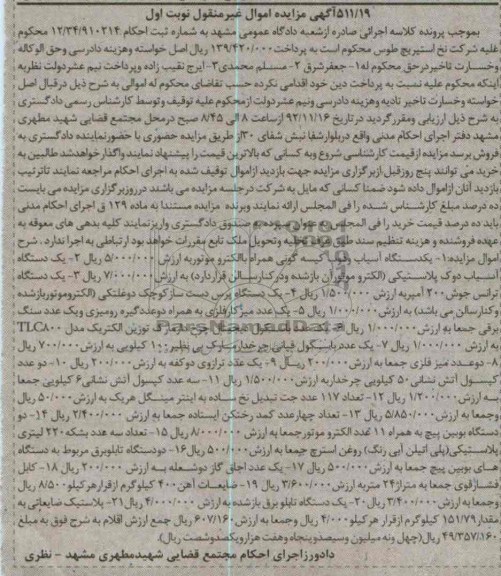 ۵۱۱/۱۹آگهی مزایده اموال غیرمنقول نوبت اول
بموجب پرونده کلاسه اجرائی صادره ازشعبه دادگاه عمومی مشهد به شماره ثبت احکام ۱۲/۳۴/۹۱۰۲۱۴ محکوم
علیه شرکت نخ استپریچ طوس محکوم است به پرداخت ۱۳۹/۴۲۰/۰۰۰ ریال اصل خواسته وهزینه دادرسی وحق الوکاله
وخسارت تاخیر درحق محکوم له۱- جعفرشرق ۲- مسلم محمدی۳- ایرج نقیب زاده وپرداخت نیم عشردولت نظربه
اینکه محکوم علیه نسبت به پرداخت دین خود اقدامی نکرده حسب تقاضای محکوم له اموالی به شرح ذیل درقبال اصل
خواسته وخسارت تاخیر تادیه وهزینه دادرسی ونیم عشردولت ازمحکوم علیه توقیف وتوسط کارشناس رسمی دادگستری
به شرح ذیل ارزیابی ومقرر گردید درتاریخ ۹۲/۱۱/۱۶ ازساعت ۸ الی ۸/۴۵ صبح درمحل مجتمع قضایی شهید مطهری
مشهد دفتر اجرای احکام مدنی واقع دربلوارشفا نبش شفای ۳۰از طریق مزایده حضوری با حضورنماینده دادگستری به
فروش برسد مزایده ازقیمت کارشناسی شروع وبه کسانی که بالاترین قیمت را پیشنهاد نمایند واگذارخواهدشد طالبین به
خرید می توانند پنج روزقبل ازبرگزاری مزایده جهت بازدید ازاموال توقیف شده به اجرای احکام مراجعه نمایند تاترتیب
بازدید آنان ازاموال داده شود ضمنا کسانی که مایل به شرکت درجلسه مزایده می باشند درروزبرگزاری مزایده می بایست
ده درصد مبلغ کارشناسی شده را فی المجلس ارائه نمایند وبرنده مزایده مستندا به ماده ۱۲۹ ق اجرای احکام مدنی
باید ده درصد قیمت خرید را فی المجلس به عنوان سپرده به صندوق دادگستری واریزنمایند کلیه بدهی های معوقه به
عهده فروشنده و هزینه تنظیم سند وتحویل ملک تابع مقررات خواهد بود ارتباطی به اجرا ندارد. شرح
اموال مزایده۱- یکدستگاه آسیاب کیسه گونی همراه باالکترو موتوربه ارزش ۵/۰۰۰/۰۰۰ ریال ۲- یک دستگاه
آسیاب دوک پلاستیکی (الکترو موتورآن بازشده ودرکنارسالن قراردارد) به ارزش ۷/۰۰۰/۰۰۰ ریال ۳- یک دستگاه
ترانس جوش ۲۰۰ آمپربه ارزش ۱/۵۰۰/۰۰۰ ریال ۴- یک دستگاه پرس دست ساز کوچک دوغلتکی (الکتروموتوربازشده
وکنارسالن می باشد) به ارزش ۱/۰۰۰/۰۰۰ ریال ۵- یک عدد میزکارفلزی به همراه دوعددگیره رومیزی ویک عدد سنگ
برقی جمعا به ارزش ۱/۰۰۰/۰۰۰ ریال ۶- توزین الکتریک مدل TLC۸۰۰
به ارزش ۱/۰۰۰/۰۰۰ ریال ۷- یک عدد باسکول قپانی چرخدارمارک بی نظیر ۱۰۰ کیلویی به ارزش ۷۰۰/۰۰۰ ریال
۸- دوعدد میز فلزی جمعا به ارزش ۲۰۰/۰۰۰ ریال ۹- یک عدد ترازوی دوکفه به ارزش ۲۰۰/۰۰۰ ریال ۱۰- دو عدد
کپسول آتش نشانی ۵۰ کیلویی چرخداربه ارزش ۱/۵۰۰/۰۰۰ ریال ۱۱- سه عدد کپسول آتش نشانی ۶ کیلویی جمعا
به ارزش ۱/۲۰۰/۰۰۰ ریال ۱۲- تعداد ۱۱۷ عدد جت تبدیل نخ ساده به اینتر مینگل هریک به ارزش ۵۰/۰۰۰ ریال
وجمعا به ارزش ۵/۸۵۰/۰۰۰ ریال ۱۳- تعداد چهارعدد کمد رختکن ایستاده جمعا به ارزش ۲/۴۰۰/۰۰۰ ریال ۱۴- دو
دستگاه بوبین پیچ به همراه ۱۱ عدد الکترو موتورجمعا به ارزش ۸/۰۰۰/۰۰۰ ریال ۱۵- تعداد سه عدد بشکه ۲۲۰ لیتری
پلاستیکی(پلی اتیلن آبی رنگ) روغن استرچ جمعا به ارزش ۵۰۰/۰۰۰ ریال ۱۶- دودستگاه تابلوبرق مربوط به دستگاه
های بوبین پیچ جمعا به ارزش ۵۰۰/۰۰۰ ریال ۱۷- یک عدد اجاق گاز دوشعله به ارزش ۲۰۰/۰۰۰ ریال ۱۸- کابل
فشارقوی جمعا به متراژ ۲۴ متربه ارزش ۳/۶۰۰/۰۰۰ ریال ۱۹- ضایعات آهن ۴۰۰ کیلوگرم ازقرارهرکیلو ۸/۵۰۰ ریال
وجمعا به ارزش ۳/۴۰۰/۰۰۰ ریال ۲۰- یک دستگاه تابلو برق بازشده به ارزش ۴/۰۰۰/۰۰۰ ریال ۲۱- پلاستیک ضایعاتی به
مقدار ۱۵۱/۷۹ کیلوگرم ازقرار هرکیلو ۴/۰۰۰ ریال وجمعا به ارزش ۶۰۷/۱۶۰ ریال جمع ارزش اقلام به شرح فوق به مبلغ
۴۹/۳۵۷/۱۶۰ ریال(چهل ونه میلیون وسیصدوپنجاه وهفت هزارویکصدوشصت ریال).
دادورزاجرای احکام مجتمع قضایی شهیدمطهری مشهد - نظری